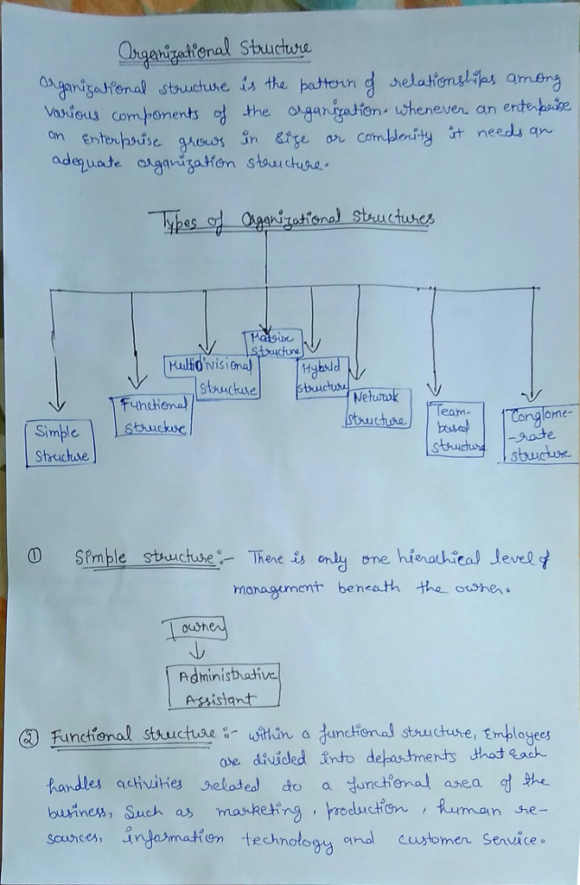 Organizational Structure
Organizational structure is the pattern of relationships among
various components of the organization. whenever an enterprise
an Enterprise grows in size or complexity it needs an
adequate organization structure.
Types of Organizational Structures
Matrix
Structure
Multidivisional
Structure
Hybrid
structure
Functional
Structure
Network
Structure
Team-
based
structure
Conglome-
-rate
structure
Simple
Structure
① Simple structure:- There is only one hierachical level of
management beneath the owner.
1 owner
Administrative
Assistant
② Functional structure:- within a functional structure, Employees
are divided into departments that each
handles activities related to a functional area of the
business, Such as marketing, production, human re-
sources, information technology and customer service.